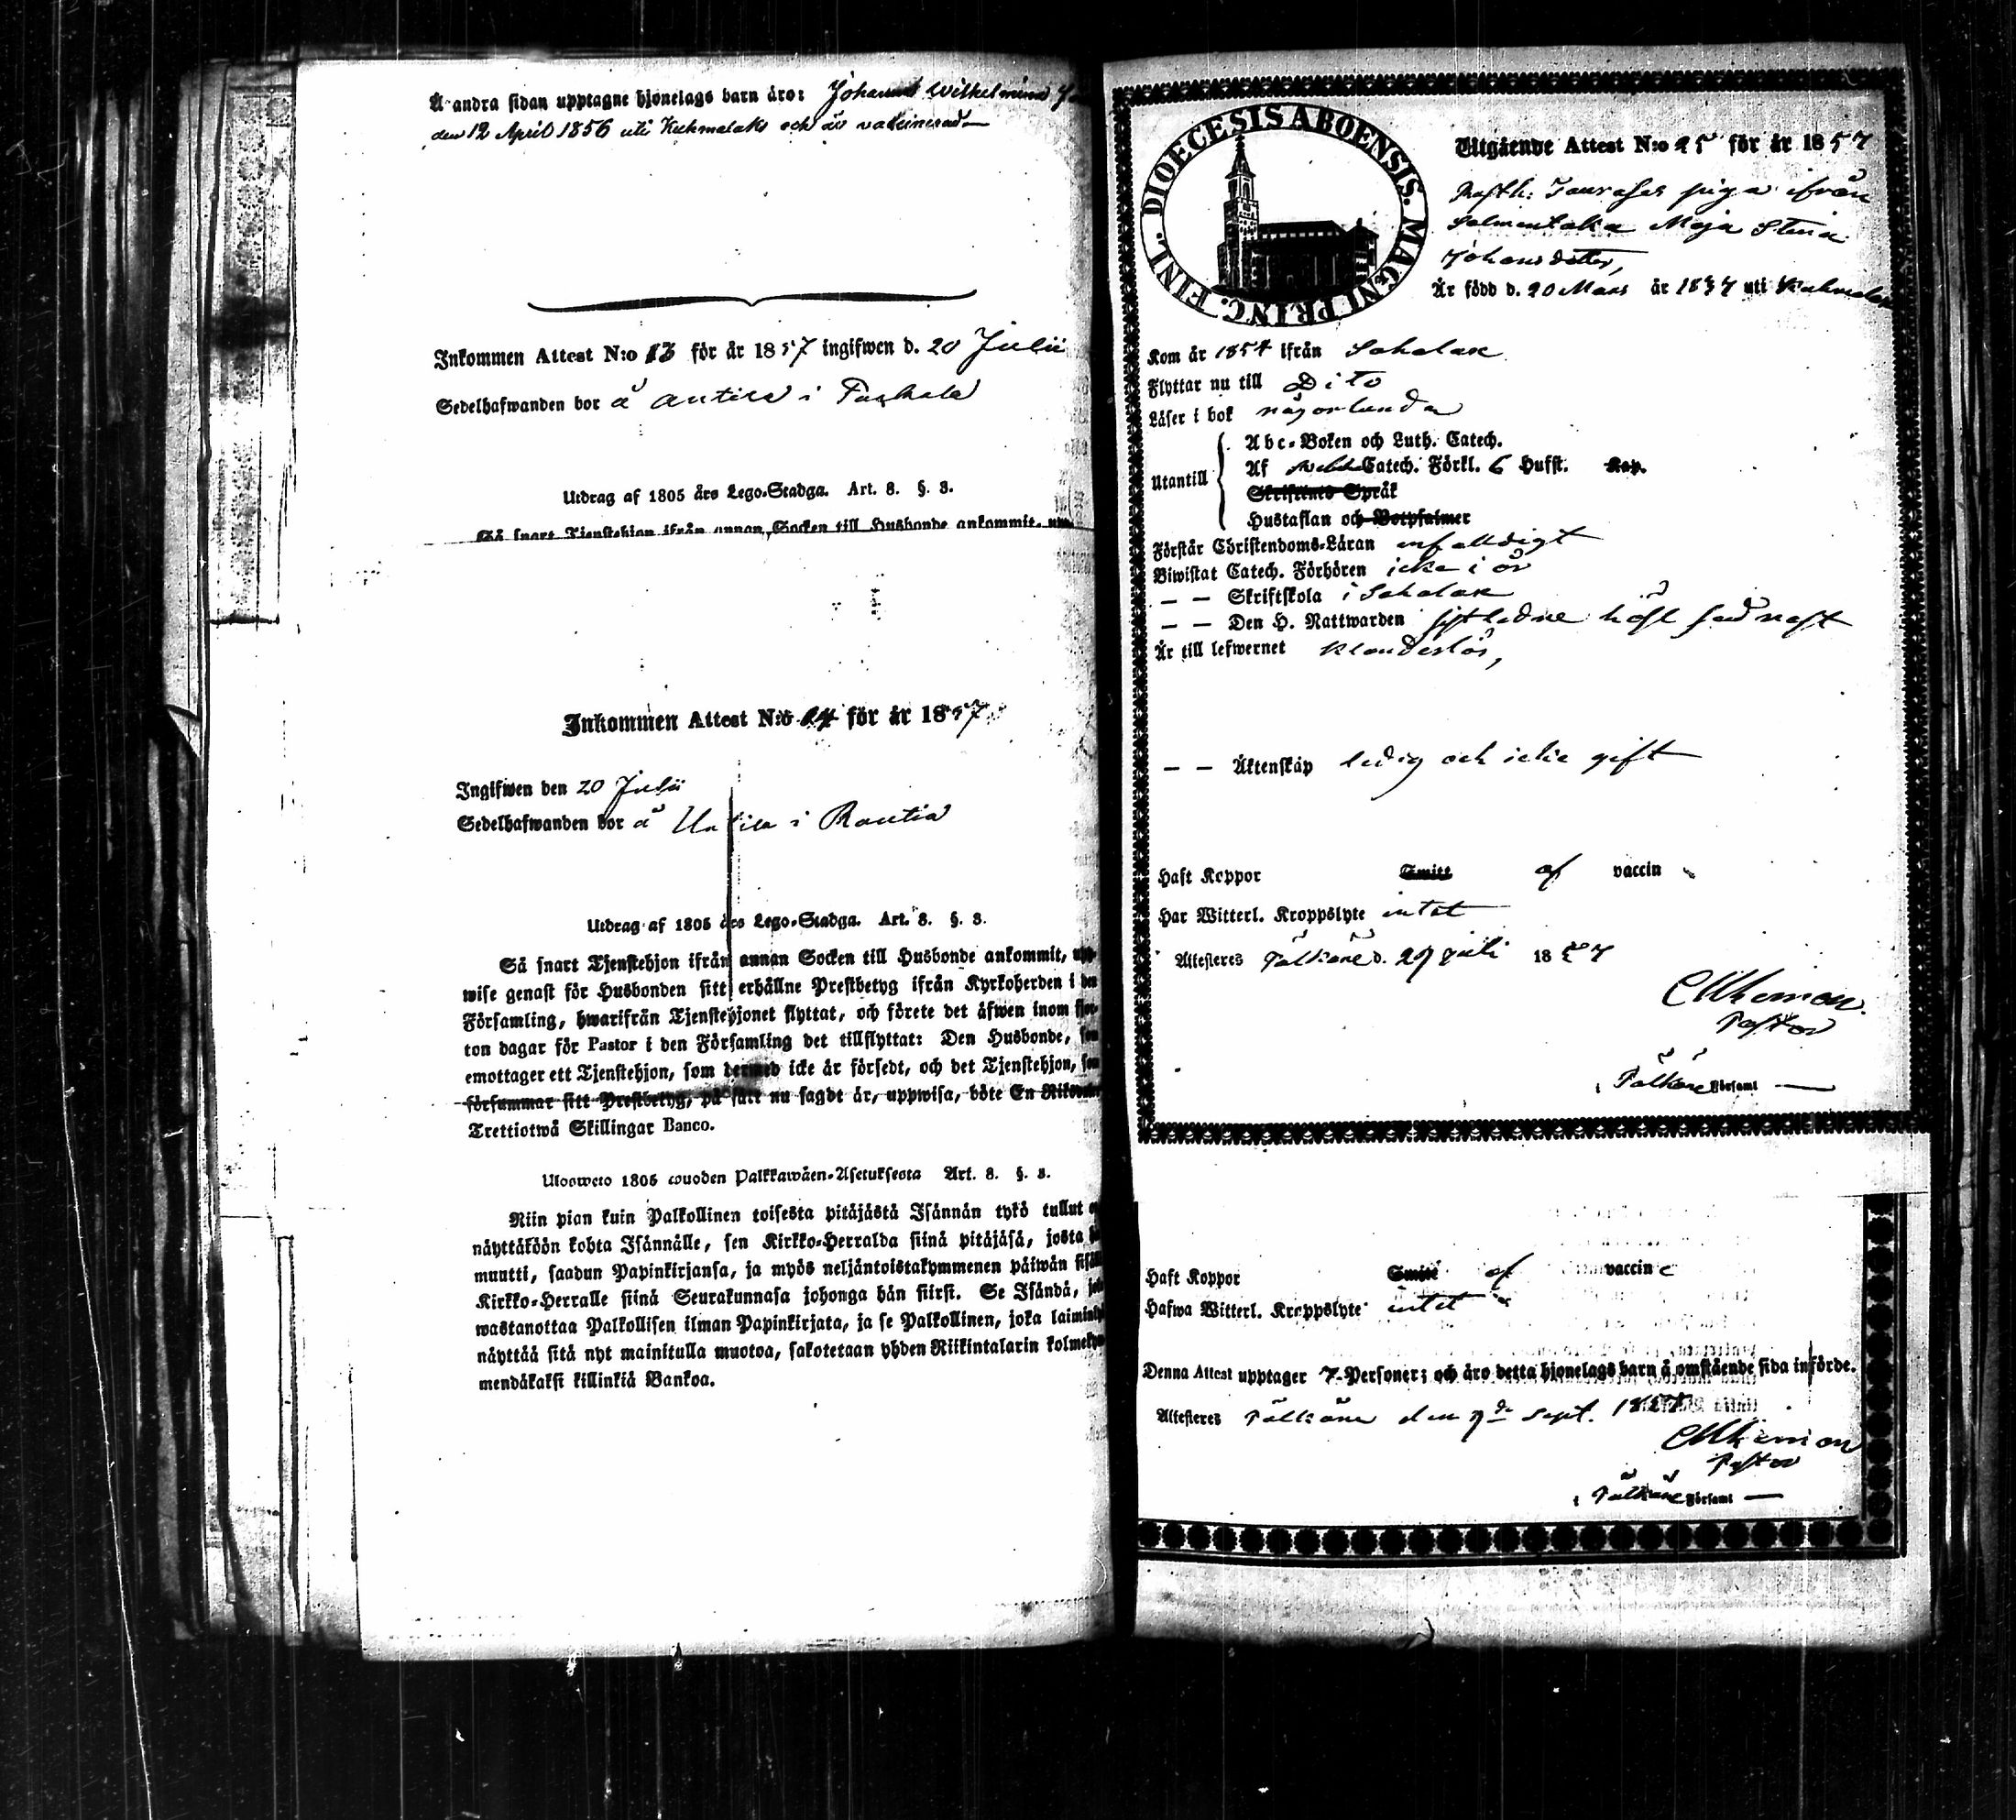 Å andra sidan upptagne hjonelags barn äro: Johanna Wilhelmina
den 12 April 1856 uti Kuhmalaks och är vaccinerad
Inkommen Attest N:o 13 för år 1857 ingifwen d. 20 Julii
Sedelhafwanden bor å Antila i
Utdrag af 1805 års Lego-Stadga. Art. 8. §. 8.
Så snart Tjenstehjon ifrån annan Socken till Husbonde ankommit,
Inkommen Attest N:o 14 för år 1857
Ingifwen den 20 Julii
Sedelhafwanden bor å i Rautia
Utdrag af 1805 års Lego-Stadga. Art. 8. §. 8.
Så snart Tjenstehjon ifrån annan Socken till Husbonde ankommit, upp-
wise genast för Husbonden sitt erhållne Prestbetyg ifrån Kyrkoherden i den
Församling, hwarifrån Tjenstehjonet flyttat, och förete det äfwen inom fjor-
ton dagar för Pastor i den Församling det tillflyttat: Den Husbonde, som
emottager ett Tjenstehjon, som dermed icke är försedt, och det Tjenstehjon, som
försummar sitt Prestbetyg, på sätt nu sagdt är, uppwisa, böte En Riksdaler
Trettiotwå Skillingar Banco.
Ulosweto 1805 wuoden Palkkawäen-Asetuksesta Art. 8. §. 8.
Niin pian kuin Palkollinen toisesta pitäjästä Isännän tykö tullut on
näyttäköön kohta Isännälle, sen Kirkko-Herralda siinä pitäjäsä, josta hän
muutti, saadun Papinkirjansa, ja myös neljäntoistakymmenen päiwän sisällä
Kirkko-Herralle siinä Seurakunnasa johonga hän siirsi. Se Isändä, joka
wastanottaa Palkollisen ilman Papinkirjata, ja se Palkollinen, joka laiminlyö
näyttää sitä nyt mainitulla muotoa, sakotetaan yhden Riikintalarin kolmekym-
mendäkaksi killinkiä Bankoa.
DIOECESIS ABOENSIS. MAGNI PRINC. FINL.
Utgående Attest N:o 25 för år 1857
piga ifrån
Salmentaka Maja Stina
Johansdotter,
Är född d. 20 Mars år 1837 uti
Kom år 1854 ifrån Sahalax
Flyttar nu till Dito
Läser i bok någorlunda
Utantill
Abc-Boken och Luth. Catech.
Af Catech. Förkl. 6 Hufst. Kap.
Skriftenes Språk
Hustaflan och Botpsalmer
Förstår Christendoms-Läran enfaldigt
Biwistat Catech. Förhören icke i år
— — Skriftskola i Sahalax
— — Den H. Nattwarden sistledne höst
Är till lefwernet klanderlös,
— — Äktenskap ledig och icke gift
Haft Koppor Smitt af vaccin
Har Witterl. Kroppslyte intet
Attesteres Pälkäne d. 29 juli 1857
Pastor
i Pälkäne Församl
Haft Koppor Smitt af vaccin
Hafwa Witterl. Kroppslyte intet
Denna Attest upptager 7 Personer; och äro detta hjonelags barn å omstående sida införde.
Attesteres Pälkäne den 7de Sept. 1857
Pastor
i Pälkäne Församl